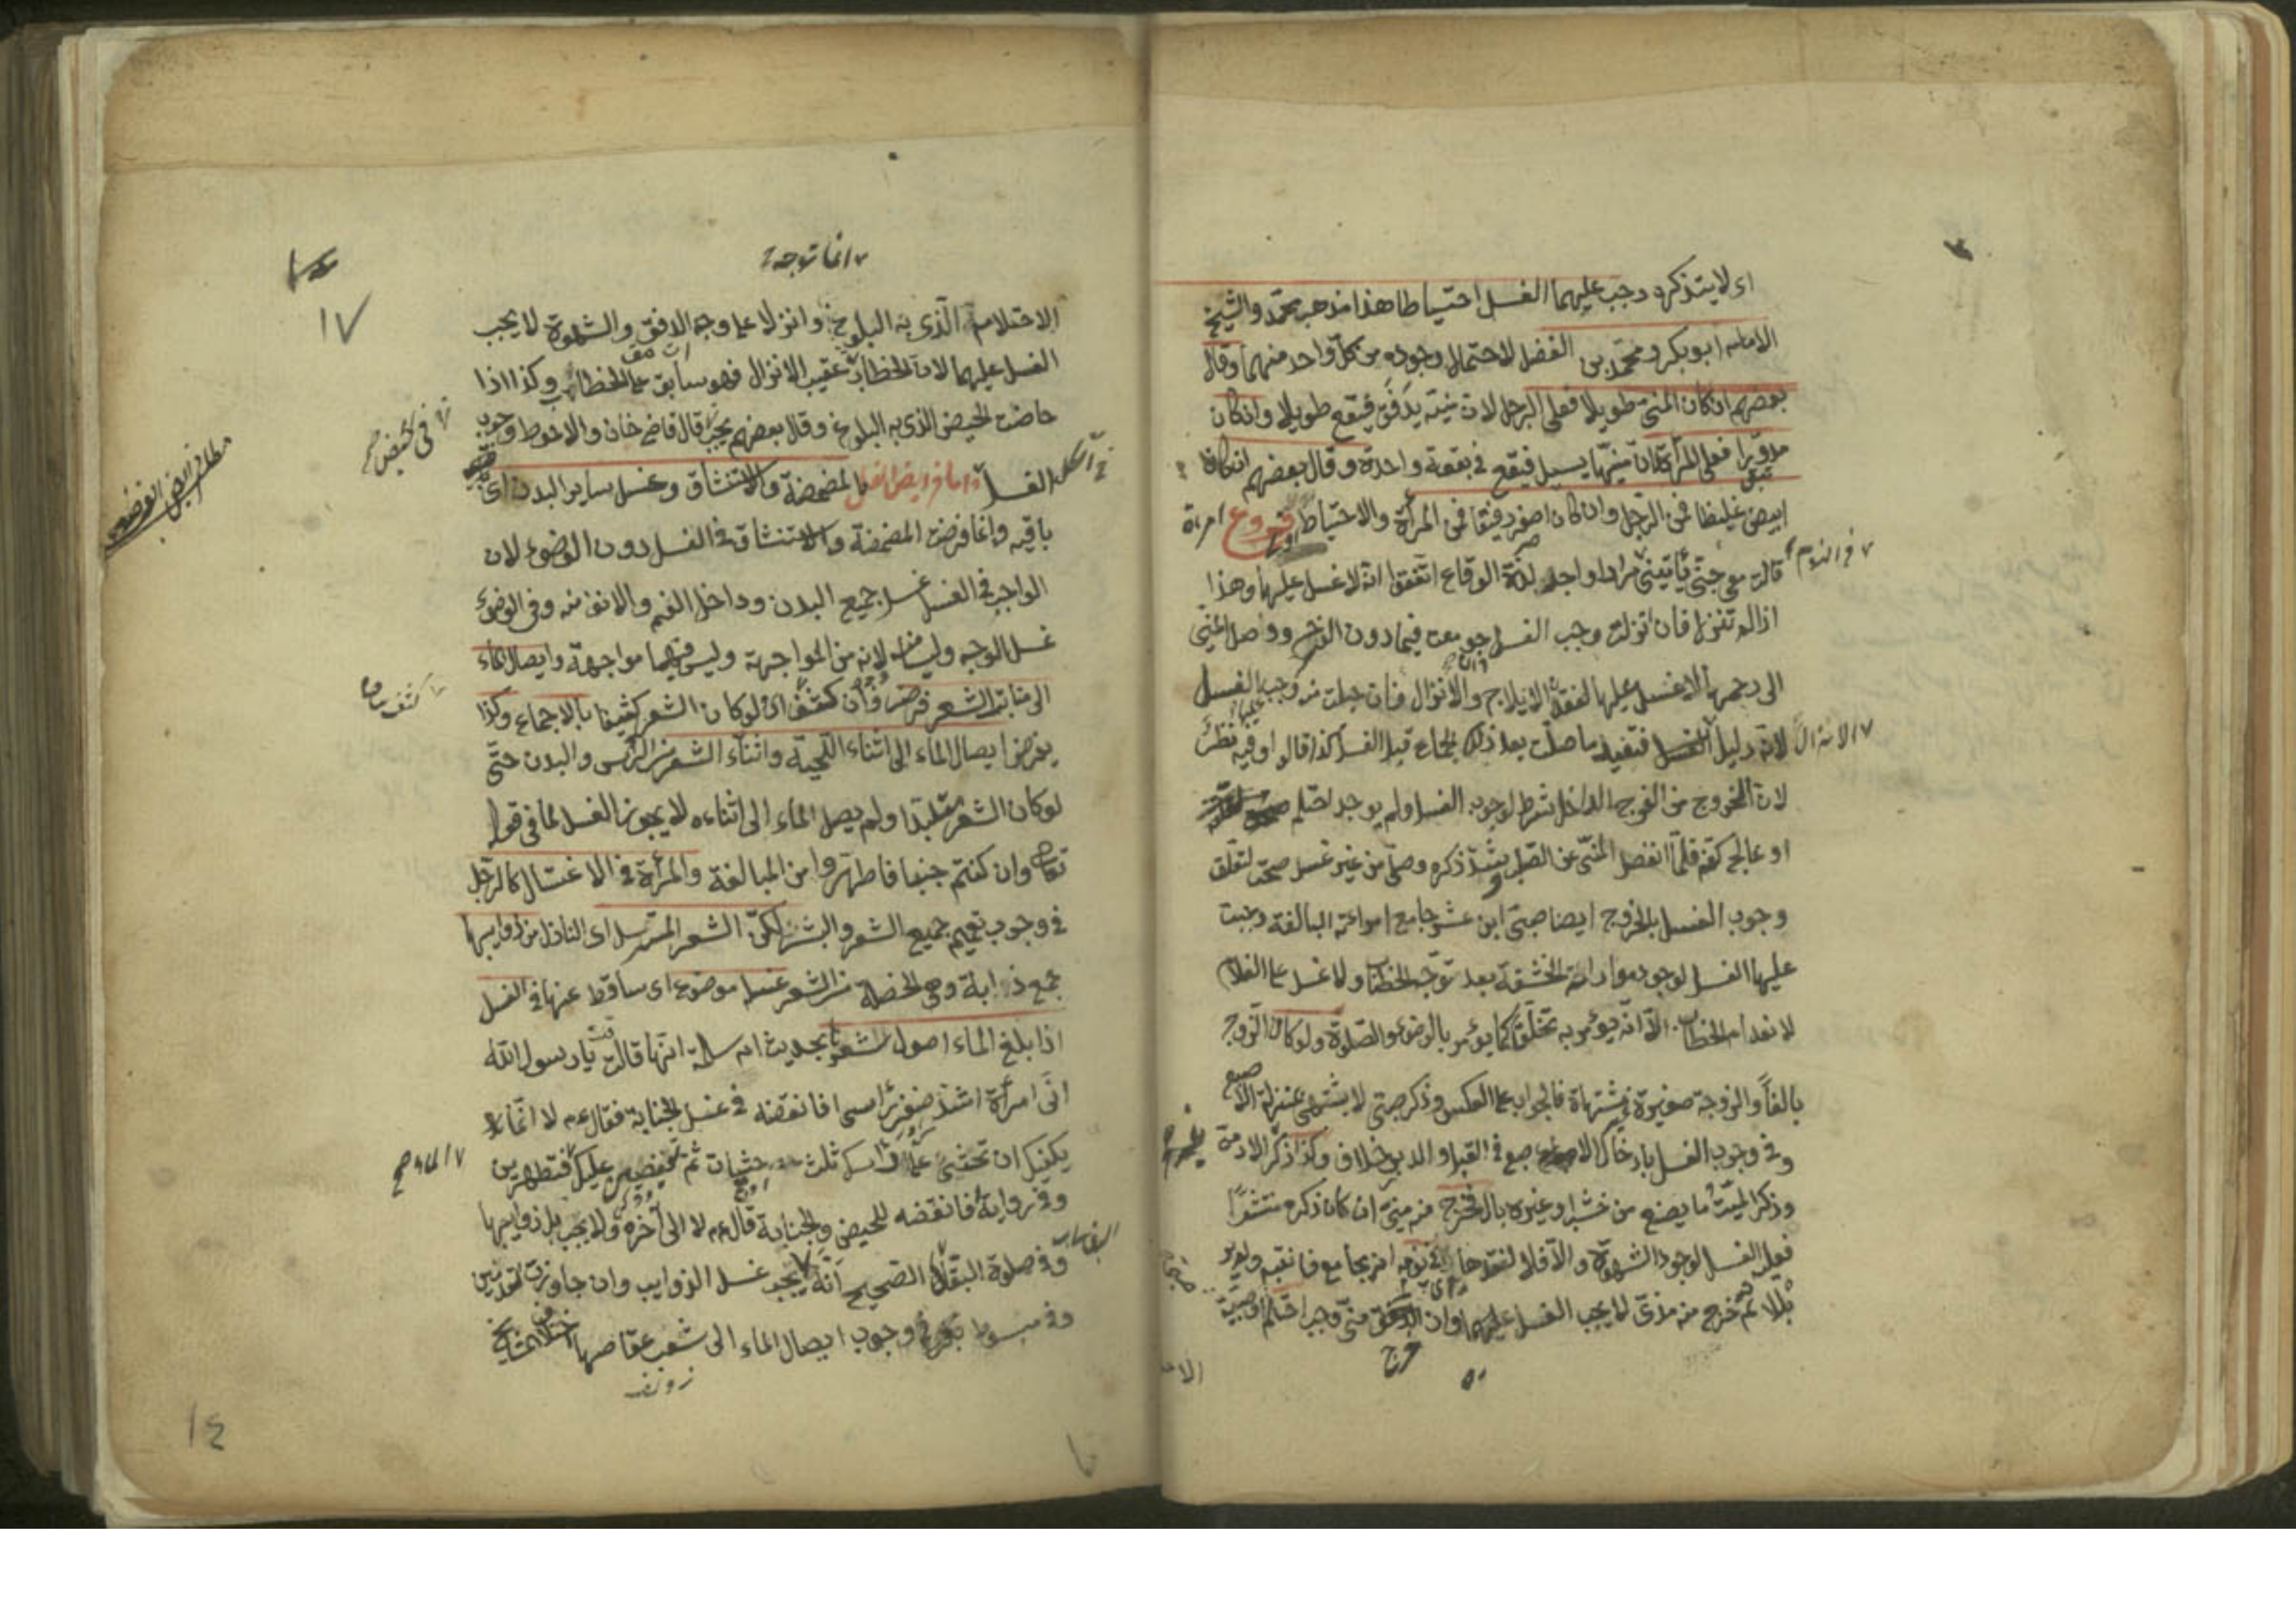 اى لا يتذكره وجب عليهما الغسل احتياطا هذا مذهب محمد والشيخ
الامام ابو بكر ومحمد بن الفضل لاحتمال وجوده من كل واحد منهما وقال
بعضهم ان كان المنى طويلا فعلى الرجل لان منيه يدفق فيقع طويلا وان كان
مدورا فعلى المرأة لان منيها يسيل فيقع فى بقعة واحدة وقال بعضهم ان كان
ابيض غليظا فمن الرجل وان كان اصفر رقيقا فمن المرأة والاحتياط فروع امرءة
قالت معى جنى يأتينى مرارا واجد لذة الوقاع اتفقوا انه لا غسل عليها وهذا
فى النوم
اذا لم تنزل فان انزلت وجب الغسل جومعت فيما دون الفرج ووصل المنى
الى رحمها لا غسل عليها لفقد الايلاج والانزال فان حبلت منه وجب الغسل
لانه دليل فتعيد ما صلت بعد ذلك الجماع قبل الغسل كذا قالوا وفيه نظر
لان الخروج من الفرج الداخل شرط لوجوب الغسل ولم يوجد احتلم
او عالج كفه فلما انفصل المنى عن الصلب شد ذكره وصلى من غير غسل صحت لتعلق
وجوب الغسل بالخروج ايضا صبى ابن عشر جامع امرأته البالغة وجبت
عليها الغسل لوجود مواراة الحشفة بعد توجه الخطاب ولا غسل على الغلام
لانعدام الخطاب الا انه يؤمر به تخلقا كما يؤمر بالوضوء والصلوة ولو كان الزوج
بالغا والزوجة صغيرة مشتهاة فالجواب على العكس وذكر صبى لا يشتهى بمنزلة الاصبع
وفى وجوب الغسل بادخال الاصبع فى القبل او الدبر خلاف وكذا ذكر
وذكر الميت وما يصنع من خشب او غيره بال فخرج من منى ان كان ذكره منتشرا
فعليه الغسل لوجود الشهوة والا فلا لفقدها
بللا ثم خرج منه مذى لا يجب الغسل عليهما وان
انما توجه
١٧
الاحتلام الذى به البلوغ وانزلا على وجه الدفق والشهوة لا يجب
الغسل عليهما لان الخطاب عقيب الانزال فهو سابق على الخطاب وكذا اذا
حاضت الحيض الذى به البلوغ وقال بعضهم يجب قال قاضى خان والاحوط وجوب
الغسل واما فرايض الغسل فالمضمضة والاستنشاق وغسل ساير البدن اى
باقيه وانما فرضت المضمضة والاستنشاق فى الغسل دون الوضوء لان
الواجب فى الغسل غسل جميع البدن وداخل الفم والانف منه وفى الوضوء
غسل الوجه وليسا منه لانه من المواجهة وليس فيهما مواجهة وايصال الماء
الى منابت الشعر فرض وان كثف اى لو كان الشعر كثيفا بالاجماع وكذا
يفرض ايصال الماء الى اثناء اللحية واثناء الشعر من الرأس والبدن حتى
لو كان الشعر متلبدا ولم يصل الماء الى اثنائه لا يجوز الغسل لما فى قوله
تعالى وان كنتم جنبا فاطهروا من المبالغة والمرأة فى الاغتسال كالرجل
فى وجوب تعميم جميع الشعر والبشر لكن الشعر المسترسل اى النازل من ذوايبها
جمع ذوابة وهى الخصلة من الشعر غسله موضوع اى ساقط عنها فى الغسل
اذا بلغ الماء اصول شعرها بحديث ام سلمة انها قالت قلت يا رسول الله
انى امرأة اشد ضفر رأسى افانقضه فى غسل الجنابة فقال عم لا انما
يكفيك ان تحثى على رأسك ثلث حثيات ثم تفيضين عليك فتطهرين
الماء صح
وفى رواية فانقضه للحيض والجنابة قال عم لا الى آخره ولا يجب بل ذوايبها
وفى صلوة البقالى الصحيح انه يجب غسل الذوايب وان جاوزت القدمين
وفى مبسوط بكر فى وجوب ايصال الماء الى شعب عقاصها اختلاف المشايخ
١٤